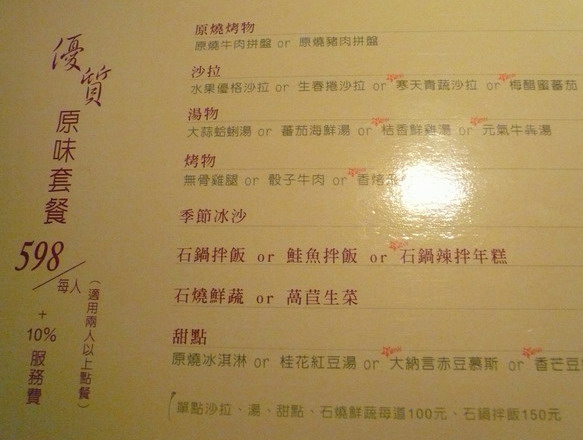 優質
原味套餐
598
每人
(適用兩人以上點餐)
+
10%
服務費
原燒烤物
原燒牛肉拼盤 or 原燒豬肉拼盤
沙拉
水果優格沙拉 or 生春捲沙拉 or 寒天青蔬沙拉 or 梅醋蜜蕃茄
湯物
大蒜蛤蜊湯 or 蕃茄海鮮湯 or 桔香鮮雞湯 or 元氣牛犇湯
烤物
無骨雞腿 or 骰子牛肉 or 香烤
季節冰沙
石鍋拌飯 or 鮭魚拌飯 or 石鍋辣拌年糕
石燒鮮蔬 or 萵苣生菜
甜點
原燒冰淇淋 or 桂花紅豆湯 or 大納言赤豆慕斯 or 香芒豆
單點沙拉、湯、甜點、石燒鮮蔬每道100元、石鍋拌飯150元